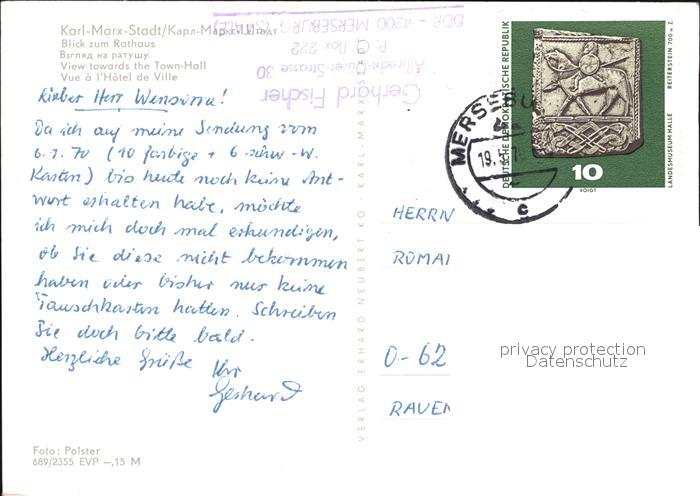 Karl-Marx-Stadt/Карл-Маркс-Штадт
Blick zum Rathaus
Взгляд на ратушу
View towards the Town-Hall
Vue à l'Hôtel de Ville
Gerhard Fischer
Albrecht-Dürer-Strasse 30
P. O. Box 222
DDR - 4200 MERSEBURG (SAALE)
Lieber Herr
Da ich auf meine Sendung vom
6.1.70 (10 farbige + 6 schw-w.
Karten) bis heute noch keine Ant-
wort erhalten habe, möchte
ich mich doch mal erkundigen,
ob Sie diese nicht bekommen
haben oder bisher nur keine
Tauschkarten hatten. Schreiben
Sie doch bitte bald.
Herzliche Grüße Ihr
Gerhard
Foto: Polster
689/2355 EVP –,15 M
VERLAG ERHARD NEUBERT KG · KARL-MARX-S
DEUTSCHE DEMOKRATISCHE REPUBLIK
10
VOIGT
REITERSTEIN 700 u. Z.
LANDESMUSEUM HALLE
MERSEBU
c
HERRN
ROMAN
O-62
RAVEN
privacy protection
Datenschutz